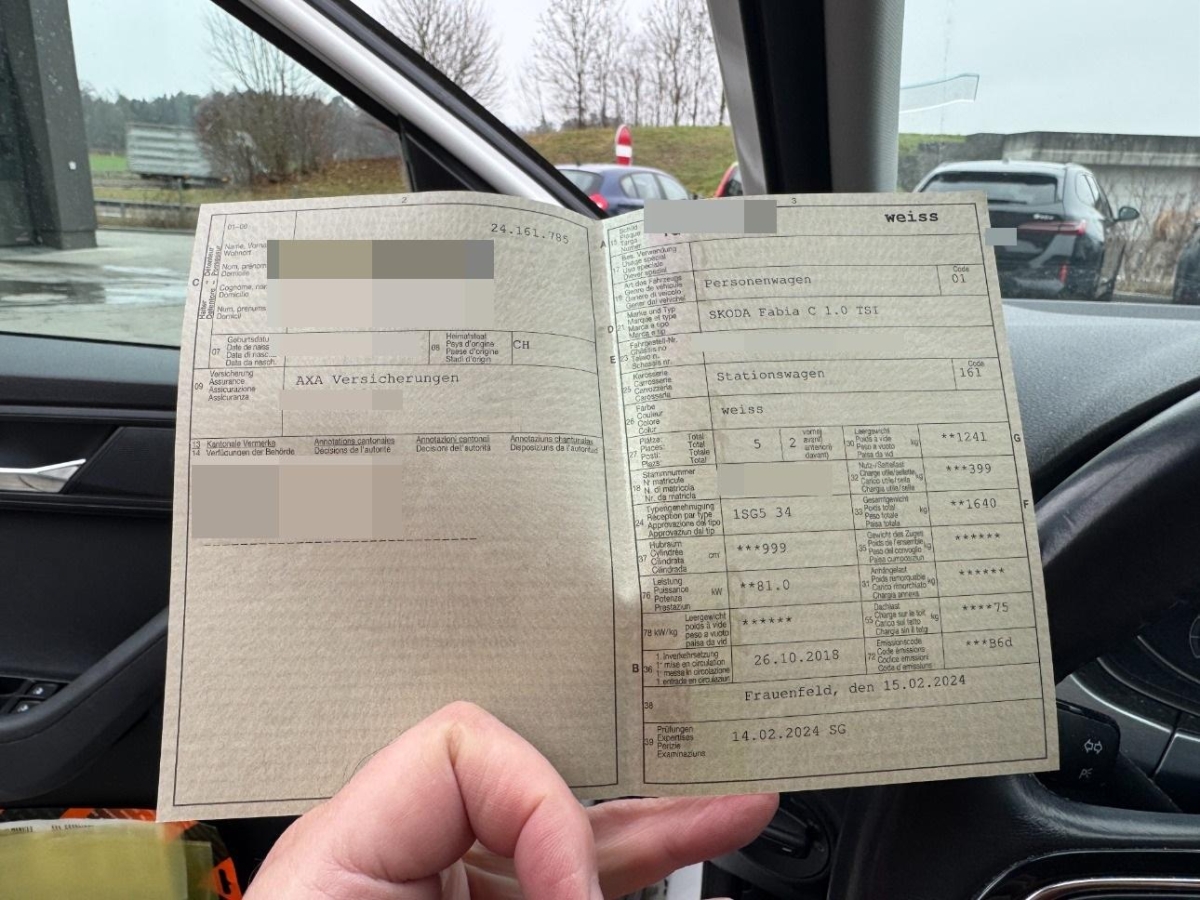 2
01-06
24.161.785
C
Halter
Name, Vorn
Wohnort
Num, prénom
Domicile
Cognome, na
Domicilio
Num, prenums
Domicil
07
Geburtsdatu
Date de nass
Data di nasc.
Data da nasch.
08
Heimatstaat
Pays d'origine
Paese d'origine
Stadi d'origin
CH
09
Versicherung
Assurance
Assicurazione
Assicuranza
AXA Versicherungen
13 Kantonale Vermerke Annotations cantonales Annotazioni cantonali Annotaziuns chantunalas
14 Verfügungen der Behörde Décisions de l'autorité Decisioni dell'autorità Disposiziuns da l'autoritad
3
A
15
Schild
Plaque
Targa
Numer
weiss
17
Bes. Verwendung
Usage spécial
Uso speciale
Diever spezial
19
Art des Fahrzeugs
Genre de véhicule
Genere di veicolo
Gener dal vehichel
Personenwagen
Code
01
D
21
Marke und Typ
Marque et type
Marca e tipo
Marca e tip
SKODA Fabia C 1.0 TSI
E
23
Fahrgestell-Nr.
Châssis no
Telaio n.
Schassis nr.
25
Karosserie
Carrosserie
Carrozzeria
Carossaria
Stationswagen
Code
161
26
Farbe
Couleur
Colore
Colur
weiss
27
Plätze: Total
Places: Total
Posti: Totale
Plazs: Total
5
2
vorn
avant
anteriori
davant
30
Leergewicht
Poids à vide
Peso a vuoto
Paisa da vid
kg
**1241
G
18
Stammnummer
N° matricule
N. di matricola
Nr. da matricla
32
Nutz-/Sattellast
Charge utile/sellette
Carico utile/sella
Chargia utila/sella
kg
***399
24
Typengenehmigung
Réception par type
Approvazione del tipo
Approvaziun dal tip
1SG5 34
33
Gesamtgewicht
Poids total
Peso totale
Paisa totala
kg
**1640
F
37
Hubraum
Cylindrée
Cilindrata
Cilindrada
cm³
***999
35
Gewicht des Zuges
Poids de l'ensemble
Peso del convoglio
Paisa cumposiziun
kg
******
76
Leistung
Puissance
Potenza
Prestaziun
kW
**81.0
31
Anhängelast
Poids remorquable
Carico rimorchiato
Chargia annexa
kg
******
78 kW/kg
Leergewicht
poids à vide
peso a vuoto
paisa da vid
******
55
Dachlast
Charge sur le toit
Carico sul tetto
Chargia sin il tetg
kg
****75
B
36
1. Inverkehrsetzung
1re mise en circulation
1a messa in circolazione
1. entrada en circulaziun
26.10.2018
72
Emissionscode
Code émissions
Codice emissioni
Code d'emissiuns
***B6d
38
Frauenfeld, den 15.02.2024
39
Prüfungen
Expertises
Perizie
Examinaziuns
14.02.2024 SG